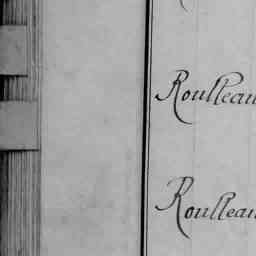 Roulleau
Roulleau